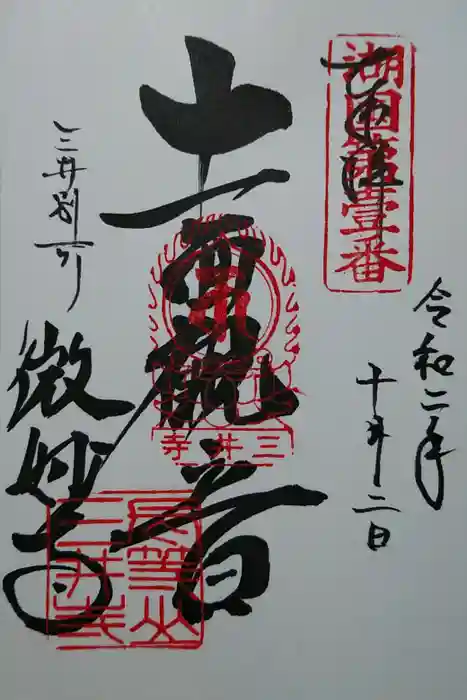 湖国第壹番
奉拝
令和二年
二日
十一面観音
三井寺
三井別所
微妙寺
長等山
三井寺